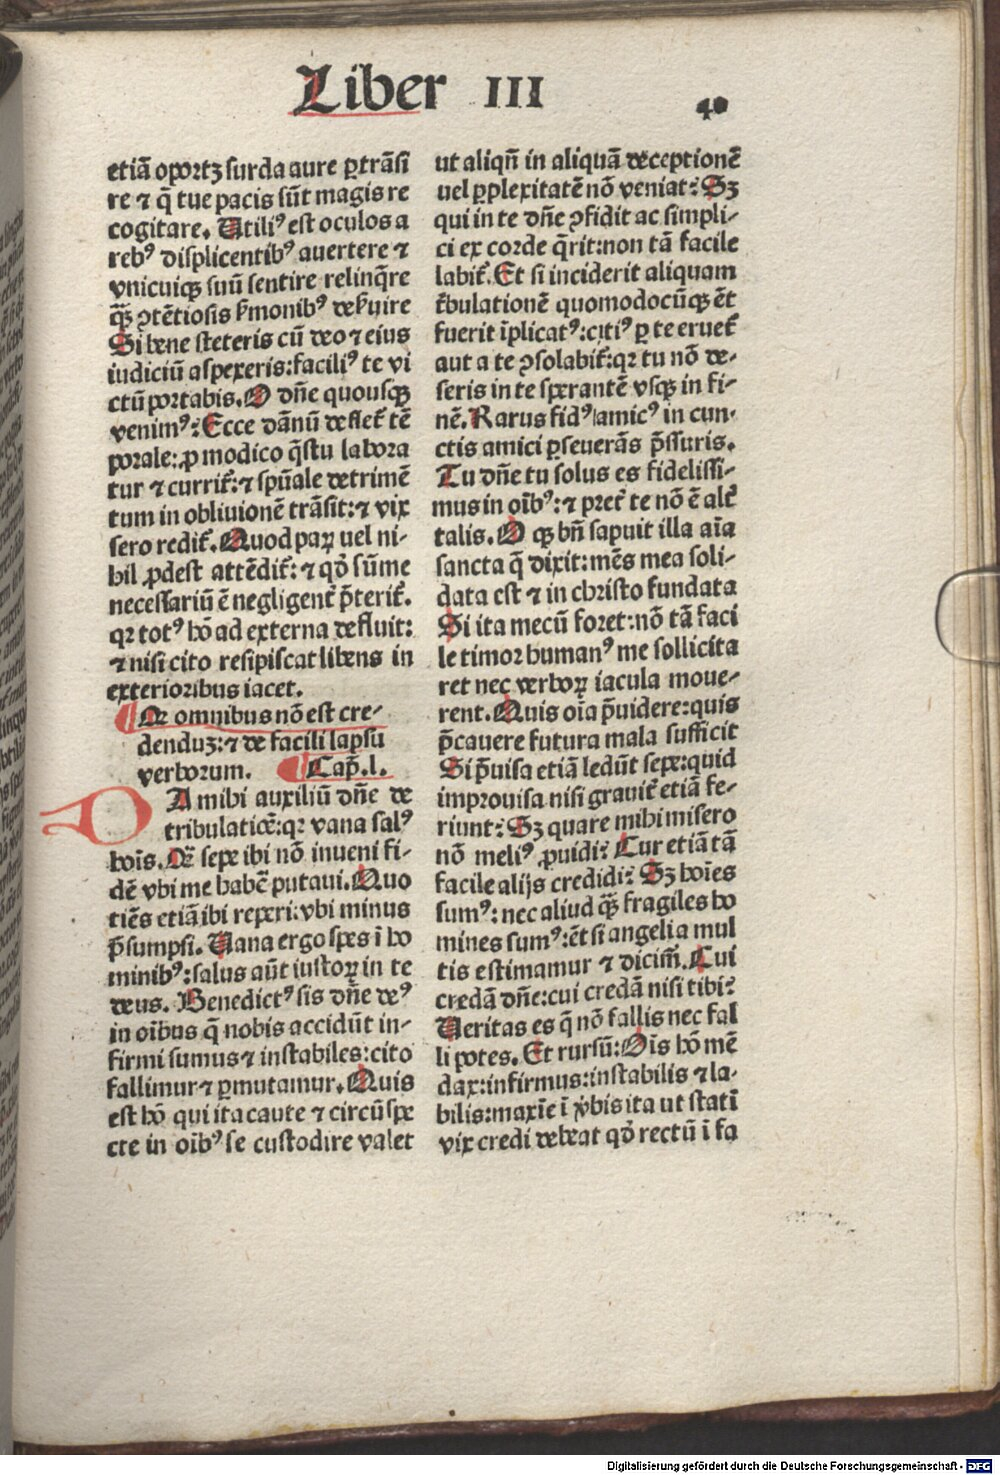 Liber III
40
etiā oportꝫ surda aure ꝑtrāsi
re ⁊ q̄ tue pacis sūt magis re
cogitare. Utiliꝰ est oculos a
rebꝰ displicentibꝰ auertere ⁊
vnicuiqꝫ suū sentire relinq̄re
qꝫ̄ ꝯtētiosis ẜmonibꝰ deẜuire
Si bene steteris cū deo ⁊ eius
iudiciū aspexeris: faciliꝰ te vi
ctū portabis. O dn̄e quousqꝫ
venimꝰ: Ecce dānū deflet᷑ tē
porale: ꝓ modico q̄stu labora
tur ⁊ currit᷑: ⁊ spūale detrimē
tum in obliuionē trāsit: ⁊ vix
sero redit᷑. Quod paꝝ uel ni-
hil ꝓdest attēdit᷑: ⁊ qđ sūme
necessariū ē negligent᷑ p̄terit᷑.
qꝛ totꝰ hō ad externa defluit:
⁊ nisi cito resipiscat libens in
exterioribus iacet.
Qꝛ omnibus nō est cre-
denduꝫ: ⁊ de facili lapsu
verborum. Cap̄. l.
DA mihi auxiliū dn̄e de
tribulatiōe: qꝛ vana salꝰ
hoīs. Qꝫ̄ sepe ibi nō inueni fi-
dē vbi me habē putaui. Quo
tiēs etiā ibi reperi: vbi minus
p̄sumpsi. Uana ergo spes ī ho
minibꝰ: salus aūt iustoꝝ in te
deus. Benedictꝰ sis dn̄e deꝰ
in oībus q̄ nobis accidūt in-
firmi sumus ⁊ instabiles: cito
fallimur ⁊ ꝑmutamur. Quis
est hō qui ita caute ⁊ circūspe
cte in oībꝰ se custodire valet
ut aliqn̄ in aliquā deceptionē
uel ꝑplexitatē nō veniat: Sꝫ
qui in te dn̄e ꝯfidit ac simpli-
ci ex corde q̄rit: non tā facile
labit᷑. Et si inciderit aliquam
t᷑bulationē quomodocūqꝫ ēt
fuerit īplicatꝰ: citiꝰ ꝑ te eruet᷑
aut a te ꝯsolabit᷑: qꝛ tu nō de-
seris in te sperantē vsqꝫ in fi-
nē. Rarus fidꝰ amicꝰ in cun-
ctis amici ꝑseuerās p̄ssuris.
Tu dn̄e tu solus es fidelissi-
mus in oībꝰ: ⁊ pret᷑ te nō ē alt᷑
talis. O qꝫ bn̄ sapuit illa aīa
sancta q̄ dixit: mēs mea soli-
data est ⁊ in christo fundata
Si ita mecū foret: nō tā faci
le timor humanꝰ me sollicita
ret nec verboꝝ iacula moue-
rent. Quis oīa p̄uidere: quis
p̄cauere futura mala sufficit
Si p̄uisa etiā ledūt sepe: quid
improuisa nisi grauit᷑ etiā fe-
riunt: Sꝫ quare mihi misero
nō meliꝰ ꝓuidi: Cur etiā tā
facile alijs credidi: Sꝫ hoīes
sumꝰ: nec aliud qꝫ̄ fragiles ho
mines sumꝰ: ēt si angeli a mul
tis estimamur ⁊ dicim̄. Cui
credā dn̄e: cui credā nisi tibi:
Ueritas es q̄ nō fallis nec fal
li potes. Et rursū: Oīs hō mē
dax: infirmus: instabilis ⁊ la-
bilis: maxīe ī v̄bis ita ut statī
vix credi debeat qđ rectū ī fa
Digitalisierung gefördert durch die Deutsche Forschungsgemeinschaft - DFG